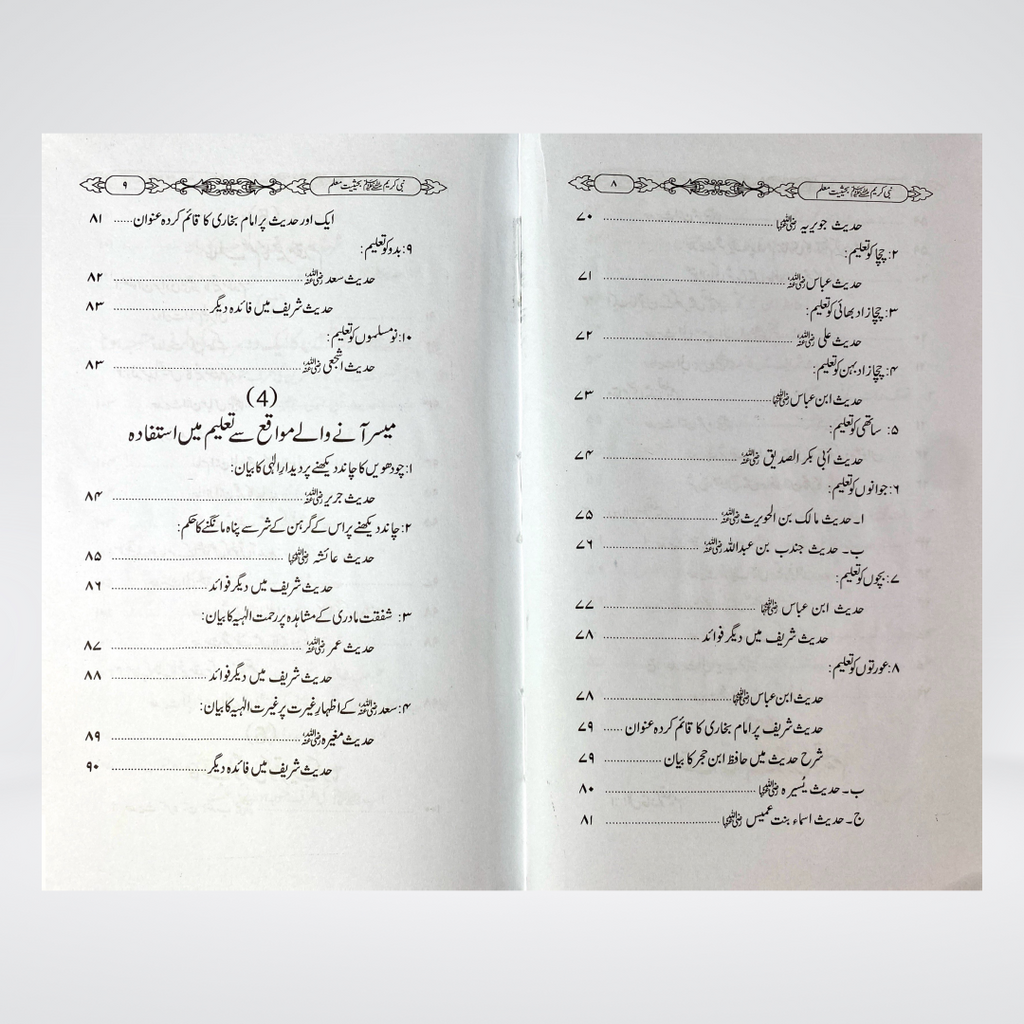 نبی کریم ﷺ بحیثیت معلم ۸
حدیث جویریہ رضی اللہ عنہا ........ ۷۰
۲: چچا کو تعلیم:
حدیث عباس رضی اللہ عنہ ........ ۷۱
۳: چچا زاد بھائی کو تعلیم:
حدیث علی رضی اللہ عنہ ........ ۷۲
۴: چچا زاد بہن کو تعلیم:
حدیث ابن عباس رضی اللہ عنہما ........ ۷۳
۵: ساتھی کو تعلیم:
حدیث أبی بکر الصدیق رضی اللہ عنہ ........ ۷۴
۶: جوانوں کو تعلیم:
ا۔ حدیث مالک بن الحویرث رضی اللہ عنہ ........ ۷۵
ب۔ حدیث جندب بن عبداللہ رضی اللہ عنہ ........ ۷۶
۷: بچوں کو تعلیم:
حدیث ابن عباس رضی اللہ عنہما ........ ۷۷
حدیث شریف میں دیگر فوائد ........ ۷۸
۸: عورتوں کو تعلیم:
حدیث ابن عباس رضی اللہ عنہما ........ ۷۸
حدیث شریف پر امام بخاری کا قائم کردہ عنوان ...... ۷۹
شرح حدیث میں حافظ ابن حجر کا بیان ........ ۷۹
ب۔ حدیث یُسیرہ رضی اللہ عنہا ........ ۸۰
ج۔ حدیث اسماء بنت عمیس رضی اللہ عنہا ........ ۸۱
نبی کریم ﷺ بحیثیت معلم ۹
ایک اور حدیث پر امام بخاری کا قائم کردہ عنوان ...... ۸۱
۹: بدو کو تعلیم:
حدیث سعد رضی اللہ عنہ ........ ۸۲
حدیث شریف میں فائدہ دیگر ........ ۸۳
۱۰: نو مسلموں کو تعلیم:
حدیث اشجعی رضی اللہ عنہ ........ ۸۳
(4)
میسر آنے والے مواقع سے تعلیم میں استفادہ
۱: چودھویں کا چاند دیکھنے پر دیدارِ الٰہی کا بیان:
حدیث جریر رضی اللہ عنہ ........ ۸۴
۲: چاند دیکھنے پر اس کے گرہن کے شر سے پناہ مانگنے کا حکم:
حدیث عائشہ رضی اللہ عنہا ........ ۸۵
حدیث شریف میں دیگر فوائد ........ ۸۶
۳: شفقت مادری کے مشاہدہ پر رحمت الٰہیہ کا بیان:
حدیث عمر رضی اللہ عنہ ........ ۸۷
حدیث شریف میں دیگر فوائد ........ ۸۸
۴: سعد رضی اللہ عنہ کے اظہارِ غیرت پر غیرت الٰہیہ کا بیان:
حدیث مغیرہ رضی اللہ عنہ ........ ۸۹
حدیث شریف میں فائدہ دیگر ........ ۹۰